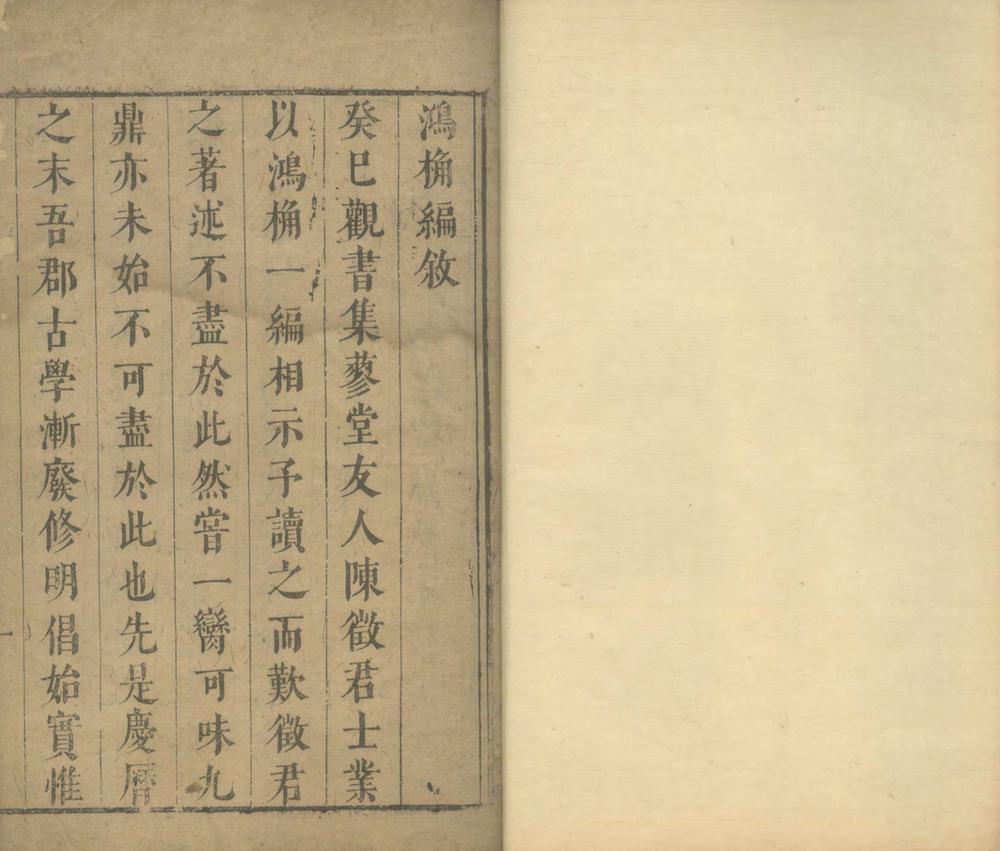 鴻桷編敘
癸巳觀書集蓼堂友人陳徵君士業
以鴻桷一編相示予讀之而歎徵君
之著述不盡於此然嘗一臠可味九
鼎亦未始不可盡於此也先是慶曆
之末吾郡古學漸廢修明倡始實惟
一